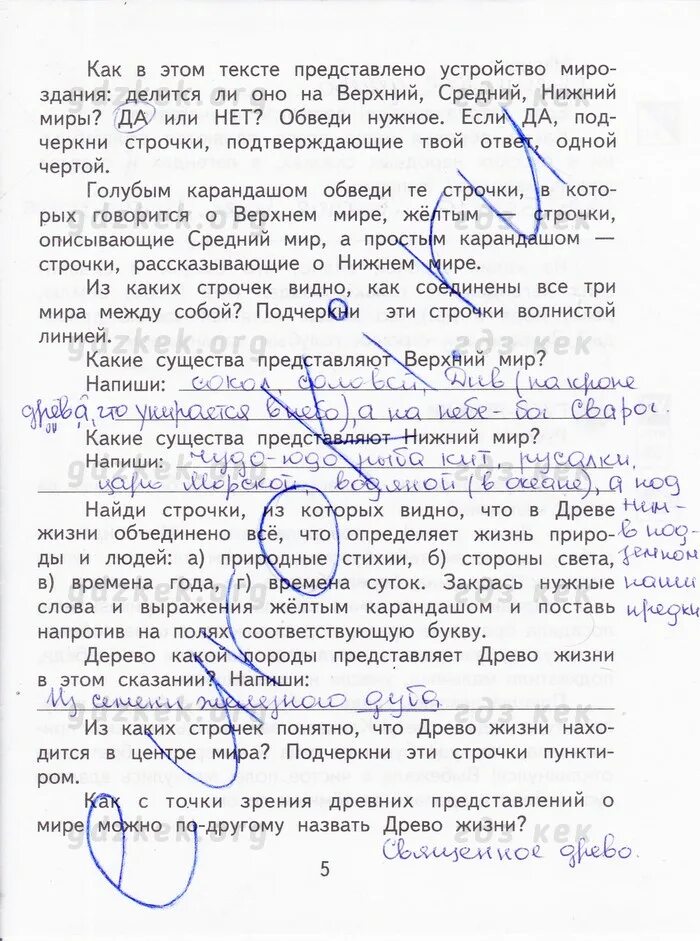 Как в этом тексте представлено устройство миро-
здания: делится ли оно на Верхний, Средний, Нижний
миры? ДА или НЕТ? Обведи нужное. Если ДА, под-
черкни строчки, подтверждающие твой ответ, одной
чертой.
Голубым карандашом обведи те строчки, в кото-
рых говорится о Верхнем мире, жёлтым — строчки,
описывающие Средний мир, а простым карандашом —
строчки, рассказывающие о Нижнем мире.
Из каких строчек видно, как соединены все три
мира между собой? Подчеркни эти строчки волнистой
линией.
Какие существа представляют Верхний мир?
Напиши: сокол, соловей, Див (на кроне
древа, что упирается в небо), а на небе - бог Сварог.
Какие существа представляют Нижний мир?
Напиши: Чудо-юдо рыба кит, русалки,
царь Морской, водяной (в океане), а под
Найди строчки, из которых видно, что в Древе ним -
жизни объединено всё, что определяет жизнь приро- в под-
ды и людей: а) природные стихии, б) стороны света, земном
в) времена года, г) времена суток. Закрась нужные наши
слова и выражения жёлтым карандашом и поставь предки
напротив на полях соответствующую букву.
Дерево какой породы представляет Древо жизни
в этом сказании? Напиши:
Из семени железного дуба
Из каких строчек понятно, что Древо жизни нахо-
дится в центре мира? Подчеркни эти строчки пункти-
ром.
Как с точки зрения древних представлений о
мире можно по-другому назвать Древо жизни?
Священное древо.
5
gdzkek.org
гдз кек